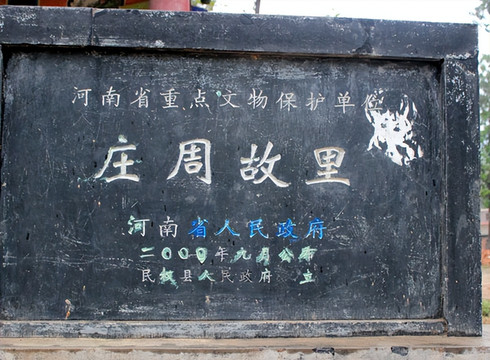 河南省重点文物保护单位
庄周故里
河南省人民政府
二〇〇〇年九月公布
民权县人民政府 立